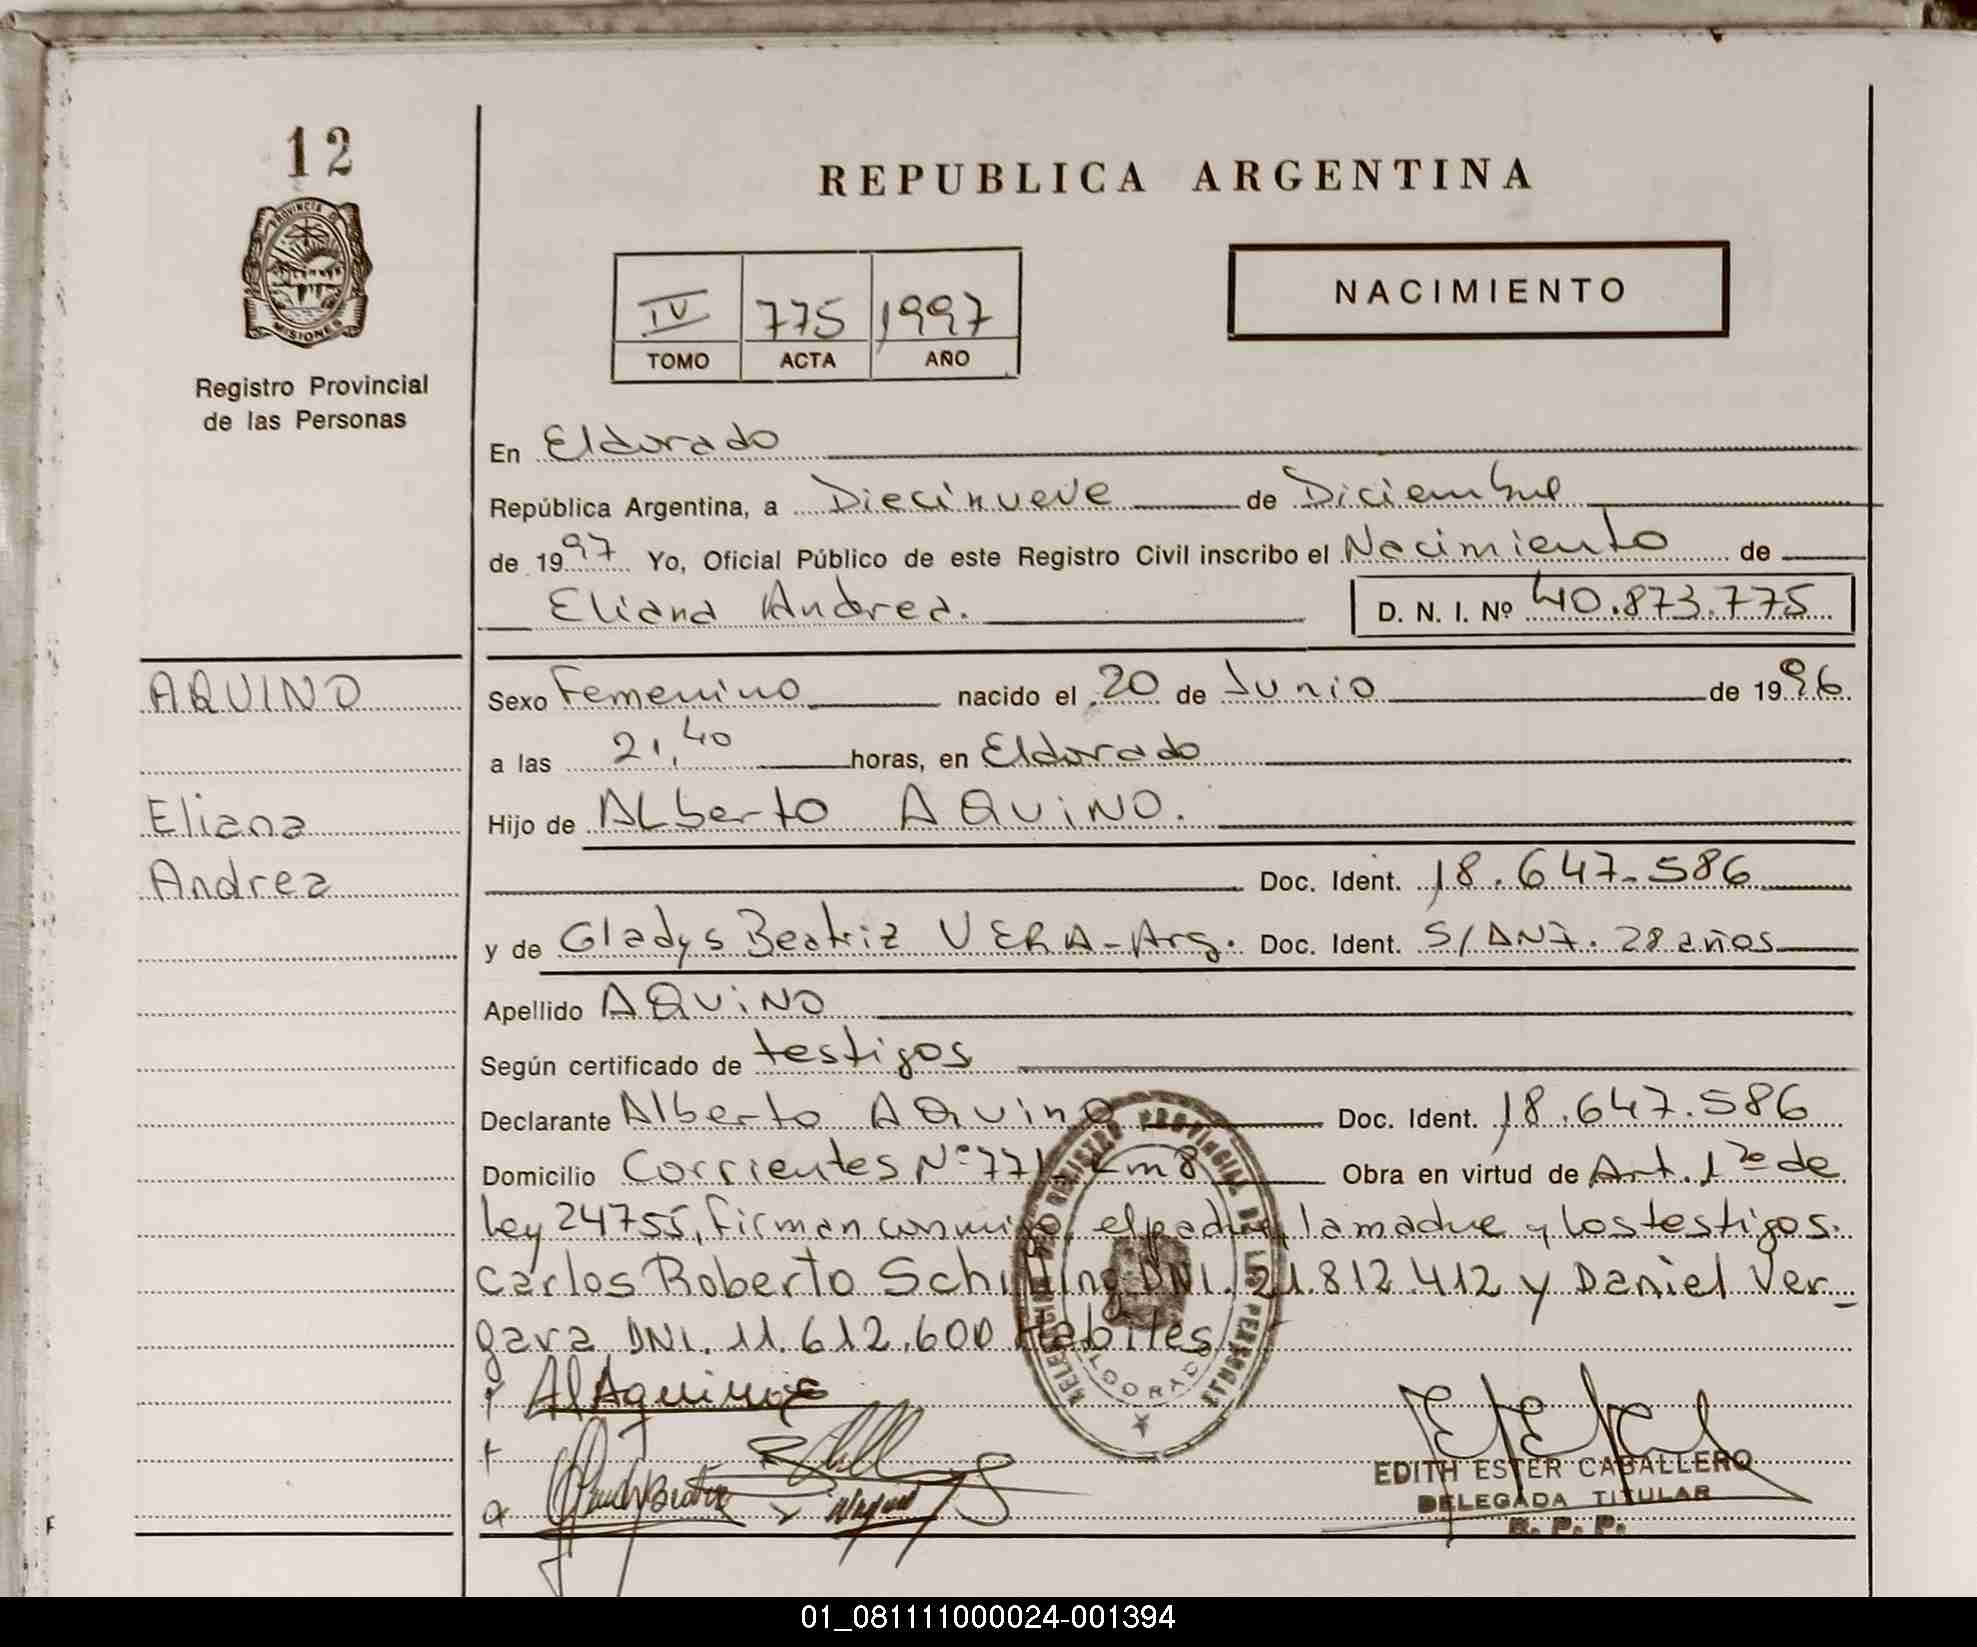 12
PROVINCIA DE
MISIONES
Registro Provincial
de las Personas
REPUBLICA ARGENTINA
IV 775 1997
TOMO ACTA AÑO
NACIMIENTO
En Eldorado
República Argentina, a Diecinueve de Diciembre
de 1997 Yo, Oficial Público de este Registro Civil inscribo el Nacimiento de
Eliana Andrea. D. N. I. Nº 40.873.775
AQUINO
Eliana
Andrea
Sexo Femenino nacido el 20 de Junio de 1996
a las 21,40 horas, en Eldorado
Hijo de ALberto AQUiNO.
Doc. Ident. 18.647.586
y de Gladys Beatriz VERA-Arg. Doc. Ident. S/DNI. 28 años
Apellido AQUiNO
Según certificado de testigos
Declarante Alberto AQuino Doc. Ident. 18.647.586
Domicilio Corrientes Nº 771 Km 8 Obra en virtud de Art. 1º de
Ley 24755, firman conmigo, el padre, la madre y los testigos.
Carlos Roberto Schilling DNI. 21.812.412 y Daniel Ver-
gara DNI. 11.612.600 Habiles
Al Aquino
EDITH ESTER CABALLERO
DELEGADA TITULAR
R. P. P.
REGISTRO PROVINCIAL DE LAS PERSONAS
ELDORADO
01_081111000024-001394